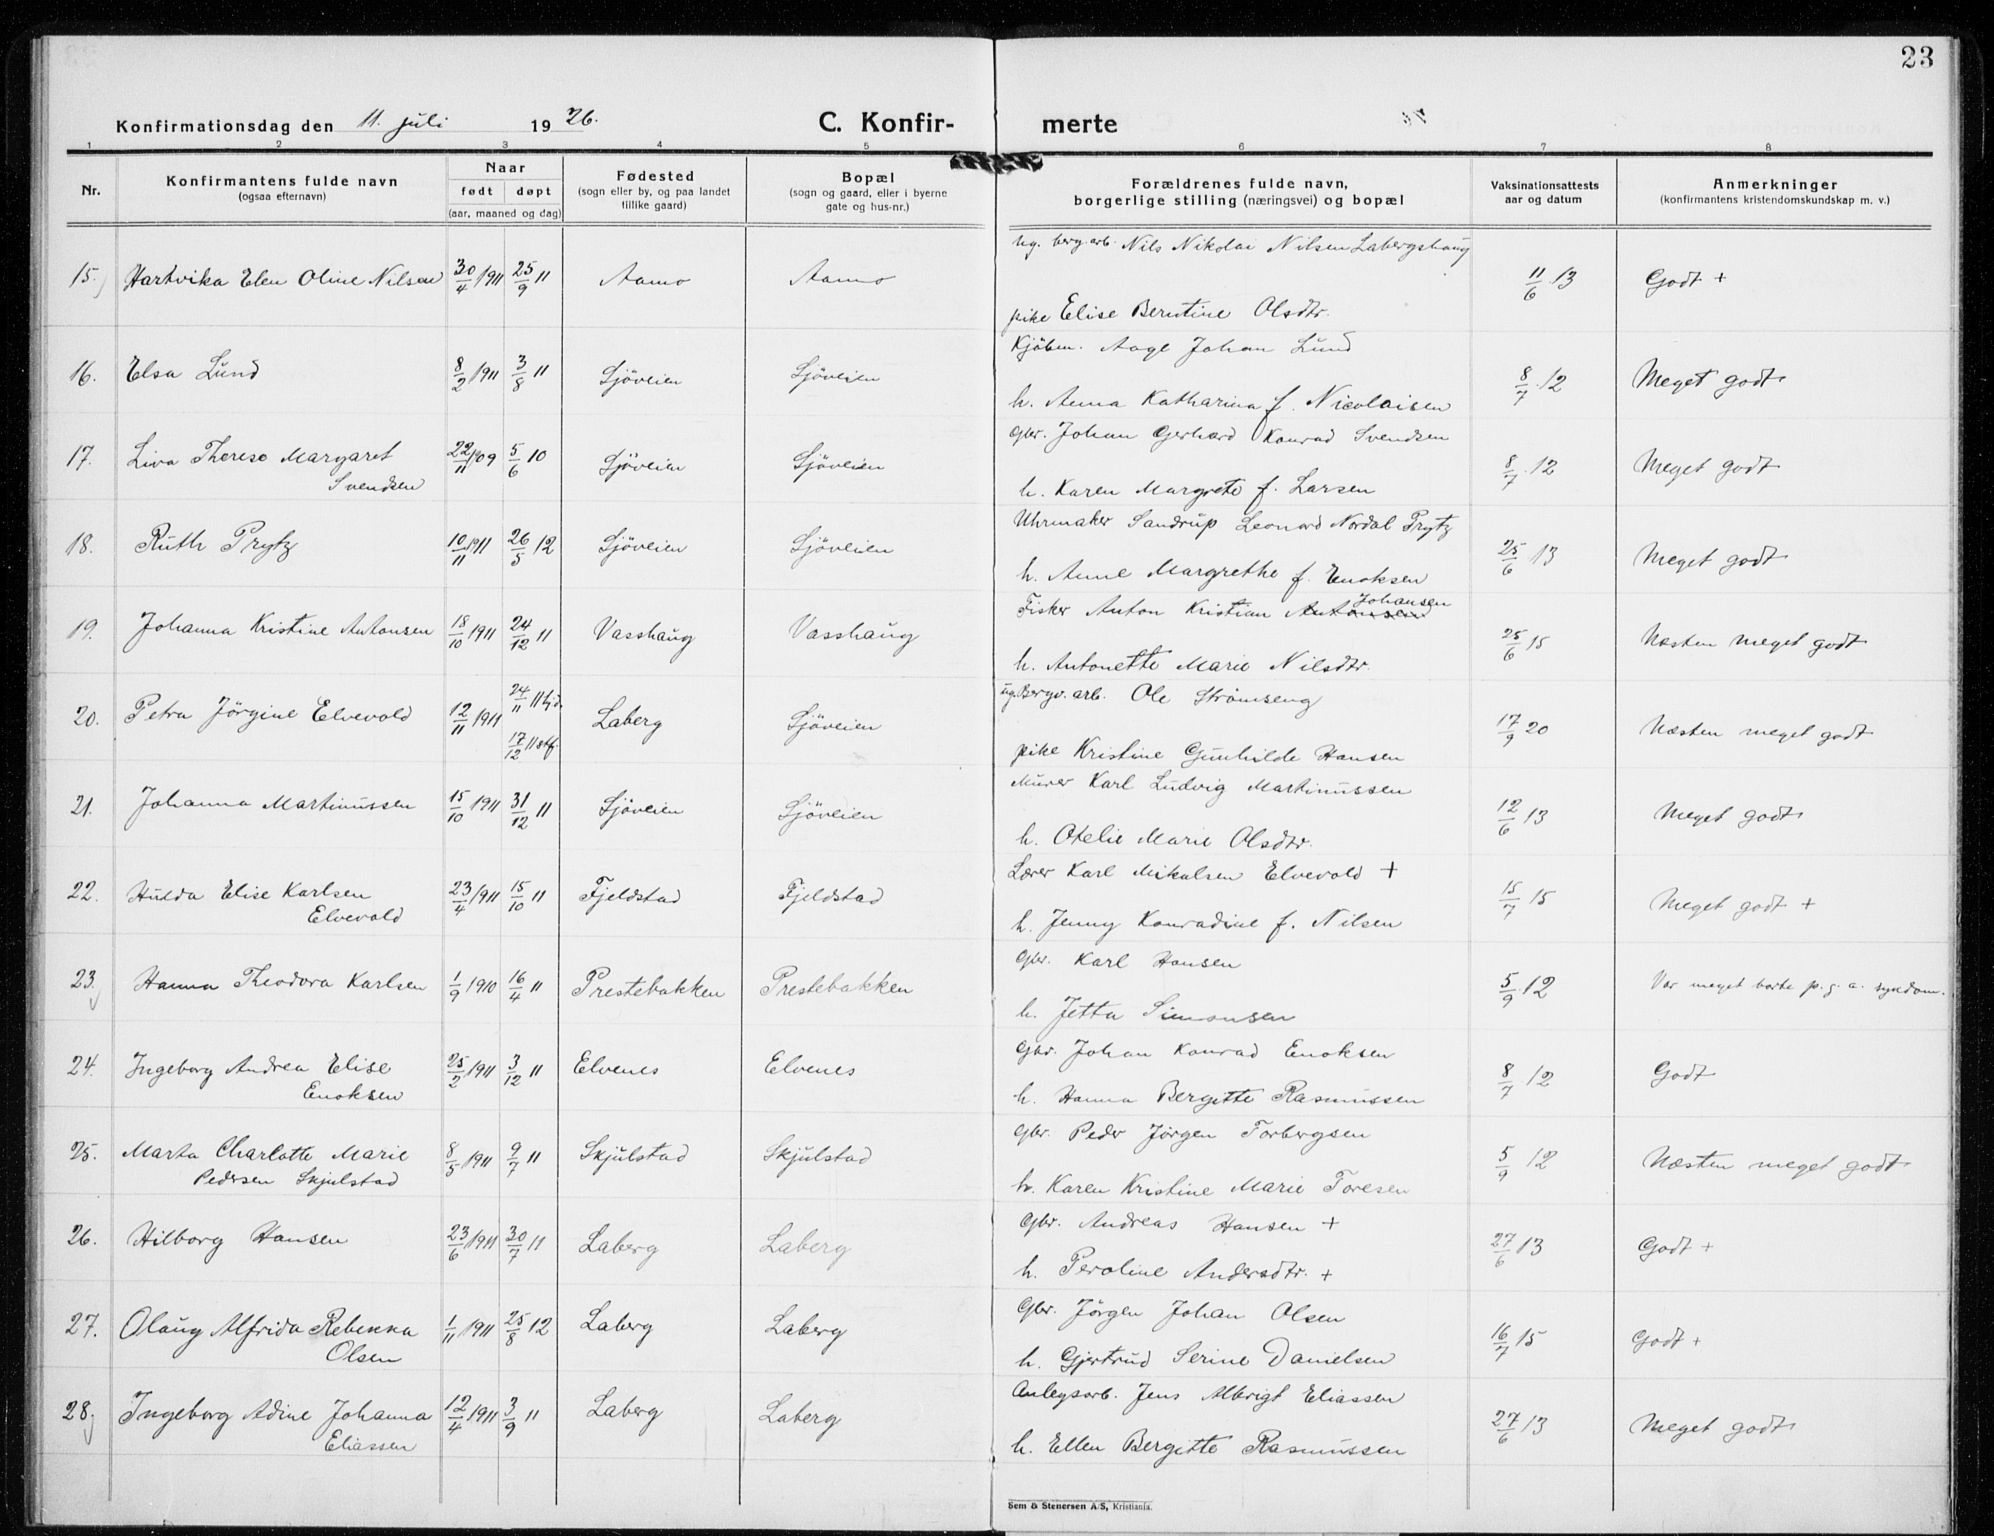 23
Konfirmationsdag den 11. juli 1926. C. Konfirmerte
1 2 3 4 5 6 7 8
Nr. Konfirmantens fulde navn (ogsaa efternavn) Naar født døpt (aar, maaned og dag) Fødested (sogn eller by, og paa landet tillike gaard) Bopæl (sogn og gaard, eller i byerne gate og hus-nr.) Forældrenes fulde navn, borgerlige stilling (næringsvei) og bopæl Vaksinationsattests aar og datum Anmerkninger (konfirmantens kristendomskundskap m. v.)
ug. berg.arb. Nils Nikolai Nilsen Labergshaug
15. Hartvika Elen Oline Nilsen 30/4 1911 25/9 11 Aamo Aamo 11/6 13 Godt +
pike Elise Berntine Olsdtr.
Kjöbm. Aage Johan Lund
16. Elsa Lund 8/2 1911 3/8 11 Sjöveien Sjöveien 8/7 12 Meget godt
h. Anna Katharina f. Nicolaisen
Gbr. Johan Gerhard Konrad Svendsen
17. Liva Therese Margaret 22/11 1909 5/6 10 Sjöveien Sjöveien 8/7 12 Meget godt
Svendsen
h. Karen Margrete f. Larsen
Uhrmaker Sandrup Leonard Nordal Prytz
18. Ruth Prytz 10/11 1911 26/5 12 Sjöveien Sjöveien 25/6 13 Meget godt
h. Anne Margrethe f. Enoksen
Johansen
Fisker Anton Kristian Antonsen
19. Johanna Kristine Antonsen 18/10 1911 24/12 11 Vasshaug Vasshaug 25/6 15 Næsten meget godt
h. Antonette Marie Nilsdtr.
ug. Bergv. arb. Ole Strømseng
20. Petra Jörgine Elvevold 12/11 1911 24/11 11 hjd. 17/12 11 stf. Laberg Sjöveien 17/9 20 Næsten meget godt
pike Kristine Gunhilde Hansen
Murer Karl Ludvig Martinussen
21. Johanna Martinussen 15/10 1911 31/12 11 Sjöveien Sjöveien 12/6 13 Meget godt
h. Otelie Marie Olsdtr.
Lærer Karl Mikalsen Elvevold +
22. Hulda Elise Karlsen 23/4 1911 15/10 11 Fjeldstad Fjeldstad 15/7 15 Meget godt +
Elvevold
h. Jenny Konradine f. Nilsen
Gbr. Karl Hansen
23. Hanna Theodora Karlsen 1/9 1910 16/4 11 Prestebakken Prestebakken 5/9 12 Var meget borte p. g. a. sykdom.
h. Jetta Simonsen
Gbr. Johan Konrad Enoksen
24. Ingeborg Andrea Elise 25/2 1911 3/12 11 Elvenes Elvenes 8/7 12 Godt
Enoksen
h. Hanna Bergitte Rasmussen
Gbr. Peder Jørgen Torbergsen
25. Marta Charlotte Marie 8/5 1911 9/7 11 Skjulstad Skjulstad 5/9 12 Næsten meget godt
Pedersen Skjulstad
h. Karen Kristine Marie Toresen
Gbr. Andreas Hansen +
26. Hilborg Hansen 23/6 1911 30/7 11 Laberg Laberg 27/6 13 Godt +
h. Peroline Andersdtr. +
Gbr. Jörgen Johan Olsen
27. Olaug Alfrida Rebekka 1/11 1911 25/8 12 Laberg Laberg 16/7 15 Godt +
Olsen
h. Gjertrud Serine Danielsen
Anlegsarb. Jens Albrigt Eliassen
28. Ingeborg Adine Johanna 12/4 1911 3/9 11 Laberg Laberg 27/6 13 Meget godt
Eliassen
h. Ellen Bergitte Rasmussen
Sem & Stenersen A/S, Kristiania.